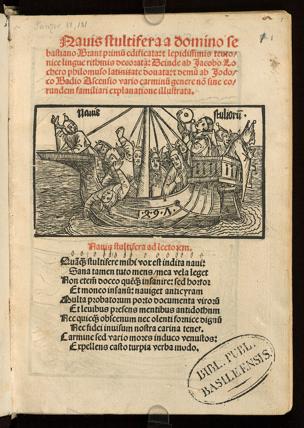 Nauis stultifera a domino se
bastiano Brant primū edificata: & lepidissimis teuto
nice lingue rithmis decorata: Deinde ab Jacobo Lo
chero philomuso latinitate donata: & demū ab Jodo
co Badio Ascensio vario carminū genere nō sine eo
rundem familiari explanatione illustrata.
Nauis stultorū.
Nauis stultifera ad lectorem.
stultifere mihi vox est indita naui:
Sana tamen tuto mens mea vela leget
Non etem̄ doceo insanire: sed hortor
Et moneo insanū: nauiget anticyram
Multa probatorum porto documenta virorū
Et leuibus presens mentibus antidothum
Nec quicq̄ obscenum nec olenti fornice dignū
Nec fidei inuisum nostra carina tenet.
Carmine sed vario mores induco venustos:
Expellens casto turpia verba modo.
BIBL. PUBL.
BASILEENSIS.